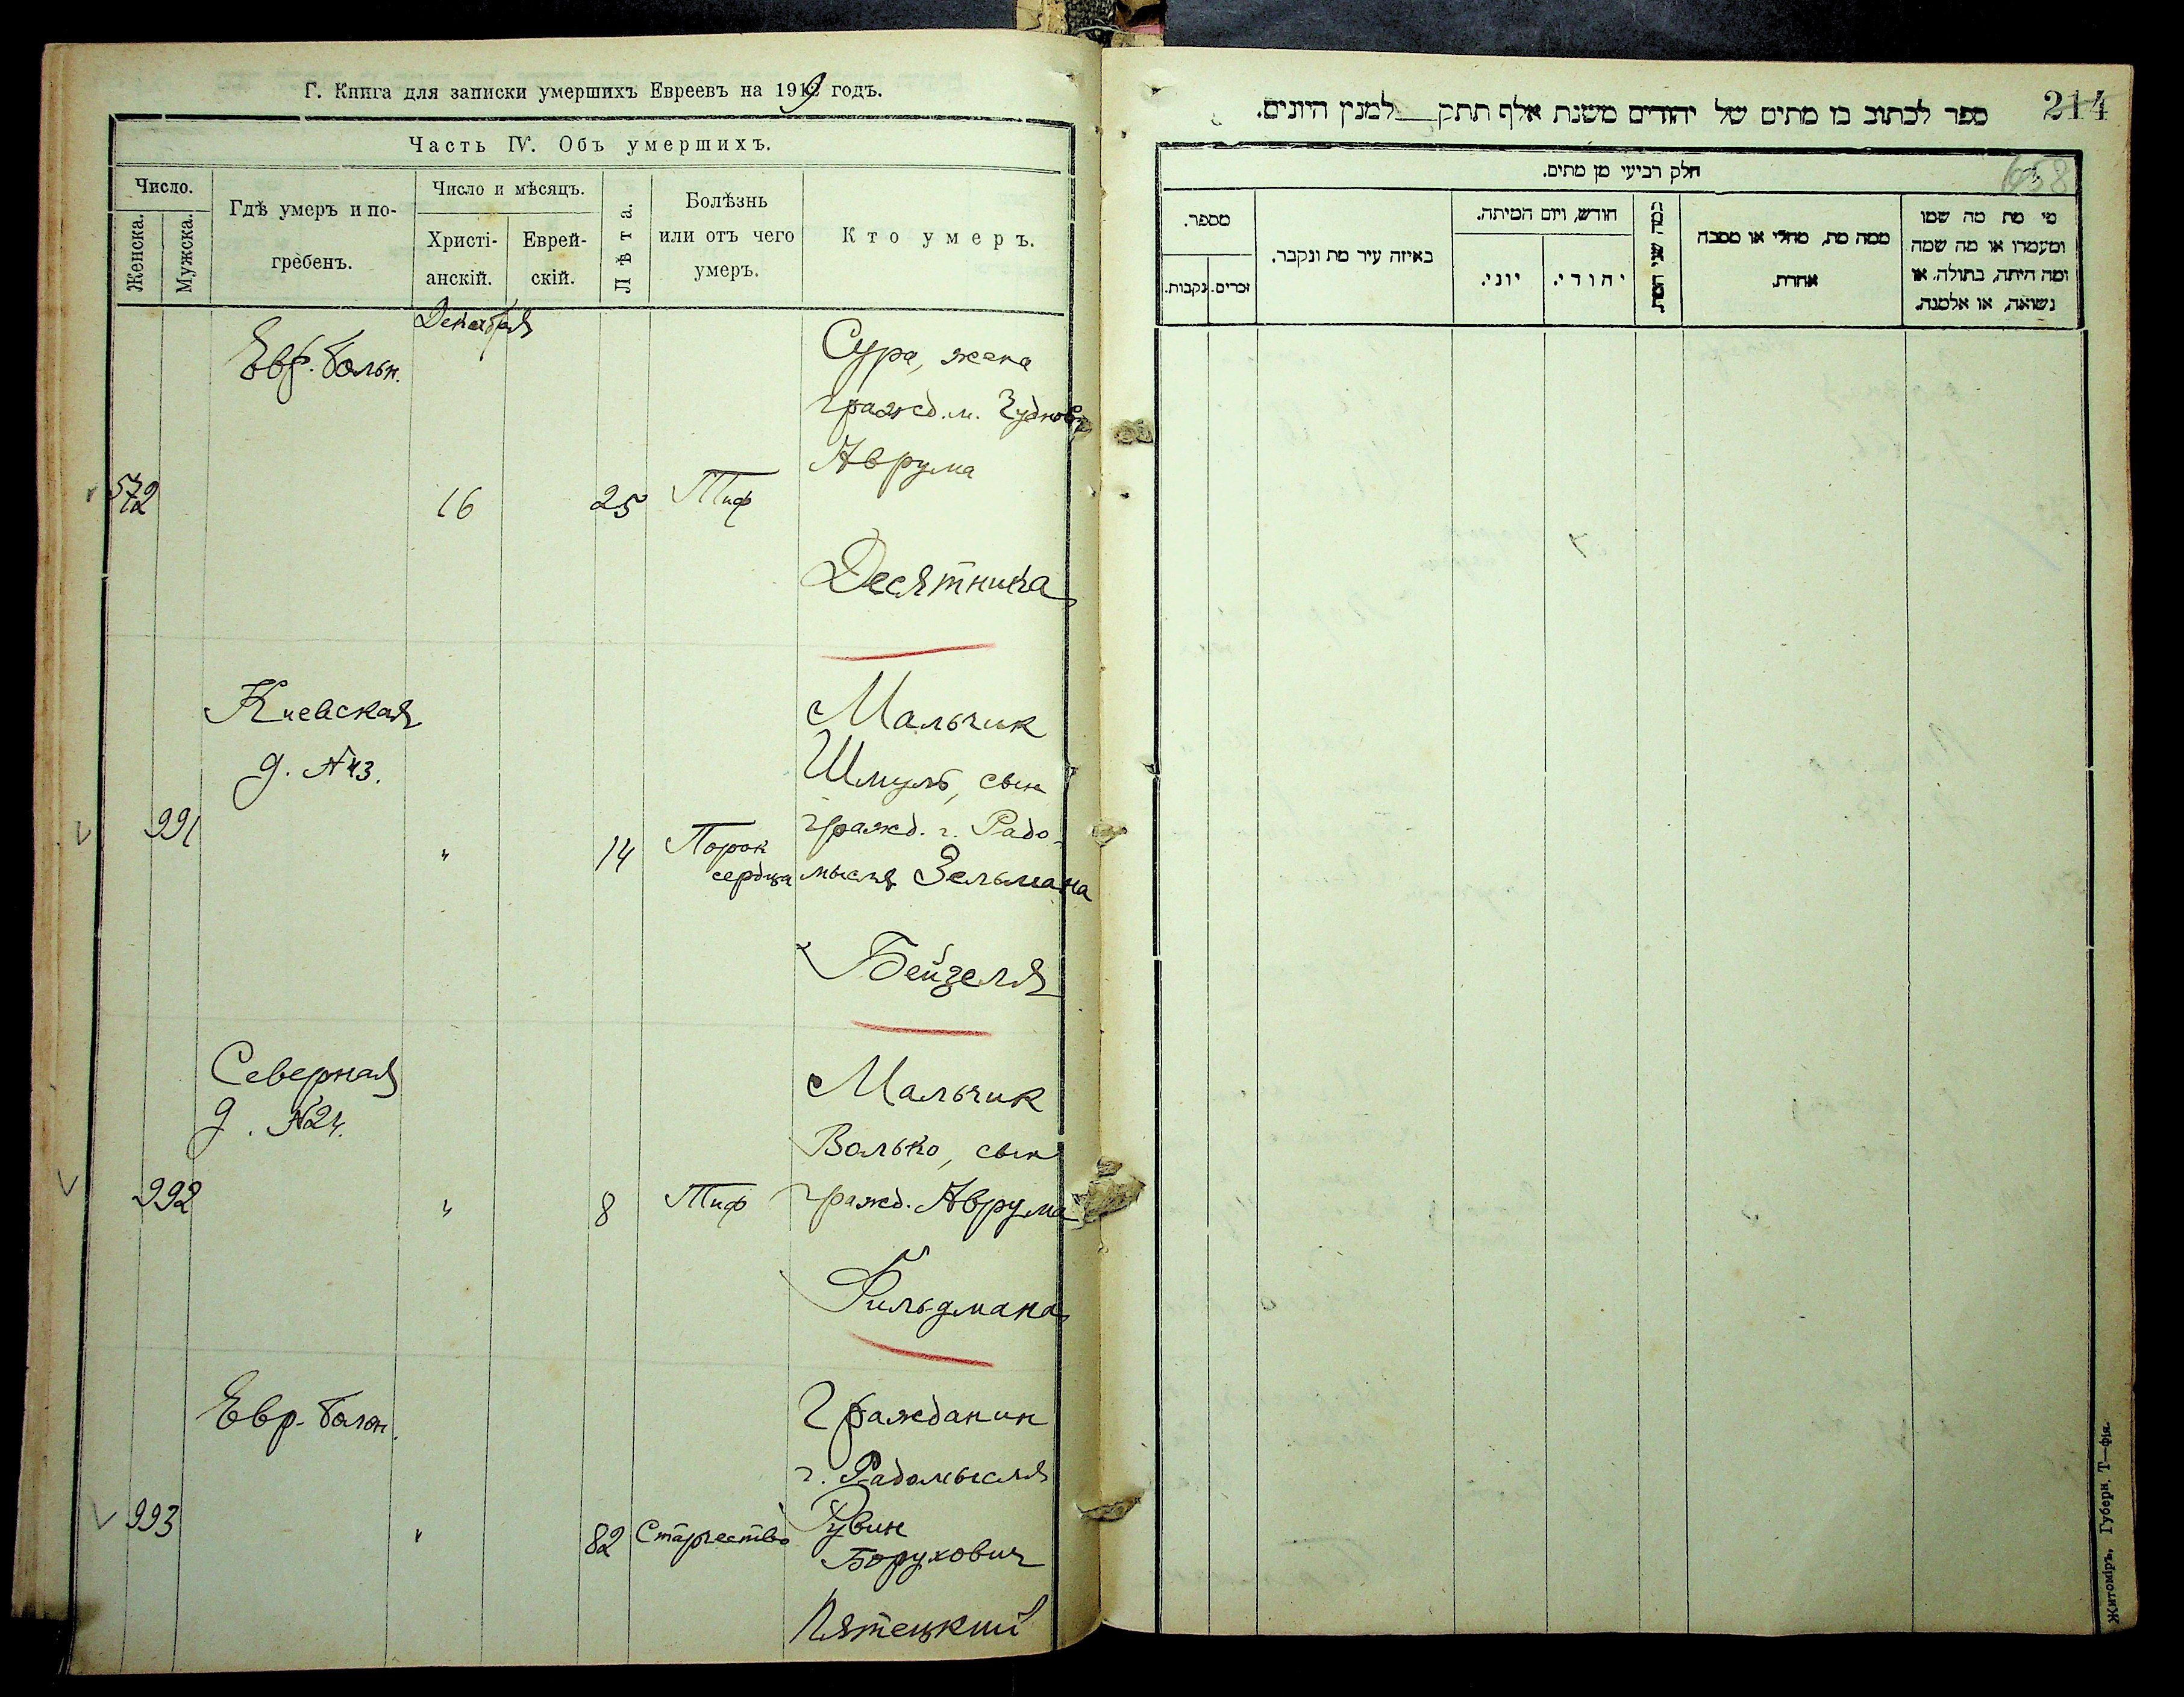 Г. Книга для записки умершихъ Евреевъ на 1919 годъ.
Часть IV. Объ умершихъ.
Число.
Женска.
Мужска.
Гдѣ умеръ и по-
гребенъ.
Число и мѣсяцъ.
Христі-
анскій.
Еврей-
скій.
Лѣта.
Болѣзнь
или отъ чего
умеръ.
Кто умеръ.
Декабря
Евр. больн.
Сура, жена
гражд. м. Чуднова
Аврума
572
16
25
Тиф
Десятника
Киевская
д. №43.
Мальчик
Шмуль, сын
гражд. г. Радо-
991
"
14
Порок
сердца
мысля Зельмана
Бейзеля
Северная
д. №24.
Мальчик
Волько, сын
992
"
8
Тиф
гражд. Аврума
Фильдмана
Евр. больн.
Гражданин
г. Радомысля
993
"
82
Старчество
Рувин
Борухович
Пятецкий
214
ספר לכתוב בו מתים של יהודים משנת אלף תתק למנין היונים.
658
חלק רביעי מן מתים.
מספר.
נקבות.
זכרים.
באיזה עיר מת ונקבר.
חודש, ויום המיתה.
יוני.
יהודי.
כמה שני המת.
ממה מת, מחלי או מסבה
אחרת.
מי מת מה שמו
ומעמדו או מה שמה
ומה היתה, בתולה, או
נשואה, או אלמנה.
Житоміръ, Губерн. Т—фія.